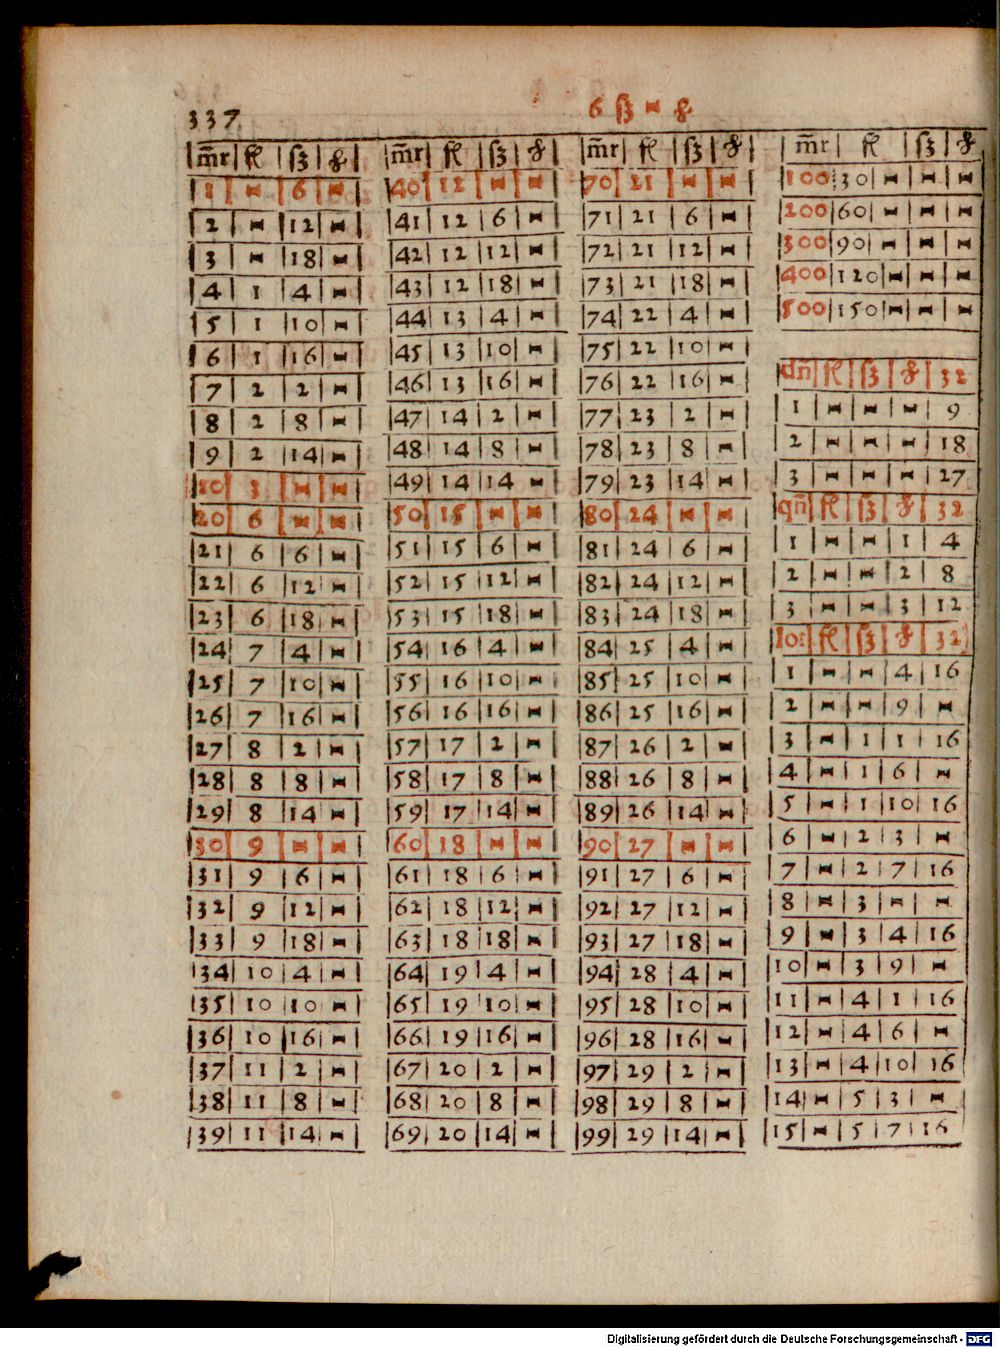 337
6 ſʒ - ₰
m̄r fl ſʒ ₰
1 - 6 -
2 - 12 -
3 - 18 -
4 1 4 -
5 1 10 -
6 1 16 -
7 2 2 -
8 2 8 -
9 2 14 -
10 3 - -
20 6 - -
21 6 6 -
22 6 12 -
23 6 18 -
24 7 4 -
25 7 10 -
26 7 16 -
27 8 2 -
28 8 8 -
29 8 14 -
30 9 - -
31 9 6 -
32 9 12 -
33 9 18 -
34 10 4 -
35 10 10 -
36 10 16 -
37 11 2 -
38 11 8 -
39 11 14 -
m̄r fl ſʒ ₰
40 12 - -
41 12 6 -
42 12 12 -
43 12 18 -
44 13 4 -
45 13 10 -
46 13 16 -
47 14 2 -
48 14 8 -
49 14 14 -
50 15 - -
51 15 6 -
52 15 12 -
53 15 18 -
54 16 4 -
55 16 10 -
56 16 16 -
57 17 2 -
58 17 8 -
59 17 14 -
60 18 - -
61 18 6 -
62 18 12 -
63 18 18 -
64 19 4 -
65 19 10 -
66 19 16 -
67 20 2 -
68 20 8 -
69 20 14 -
m̄r fl ſʒ ₰
70 21 - -
71 21 6 -
72 21 12 -
73 21 18 -
74 22 4 -
75 22 10 -
76 22 16 -
77 23 2 -
78 23 8 -
79 23 14 -
80 24 - -
81 24 6 -
82 24 12 -
83 24 18 -
84 25 4 -
85 25 10 -
86 25 16 -
87 26 2 -
88 26 8 -
89 26 14 -
90 27 - -
91 27 6 -
92 27 12 -
93 27 18 -
94 28 4 -
95 28 10 -
96 28 16 -
97 29 2 -
98 29 8 -
99 29 14 -
m̄r fl ſʒ ₰
100 30 - - -
200 60 - - -
300 90 - - -
400 120 - - -
500 150 - - -
dn̄ fl ſʒ ₰ 32
1 - - - 9
2 - - - 18
3 - - - 27
qn̄ fl ſʒ ₰ 32
1 - - 1 4
2 - - 2 8
3 - - 3 12
lo: fl ſʒ ₰ 32
1 - - 4 16
2 - - 9 -
3 - 1 1 16
4 - 1 6 -
5 - 1 10 16
6 - 2 3 -
7 - 2 7 16
8 - 3 - -
9 - 3 4 16
10 - 3 9 -
11 - 4 1 16
12 - 4 6 -
13 - 4 10 16
14 - 5 3 -
15 - 5 7 16
Digitalisierung gefördert durch die Deutsche Forschungsgemeinschaft - DFG